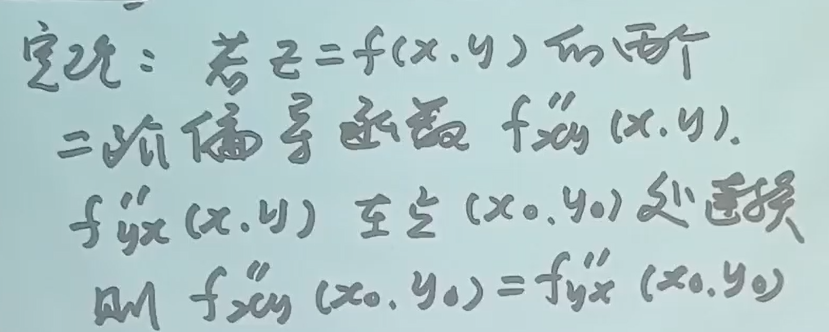 定理：若z=f(x.y)的两个
二阶偏导函数 f''xy (x.y).
f''yx (x.y) 在点 (x0.y0) 处连续
则 f''xy (x0.y0)=f''yx (x0.y0)